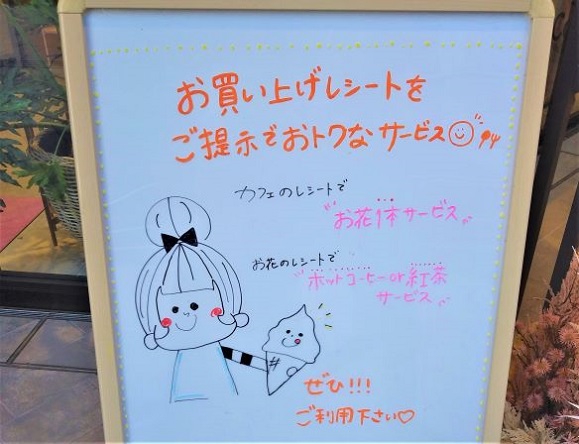 お買い上げレシートを
ご提示でおトクなサービス
カフェのレシートで
〝お花1本サービス〟
お花のレシートで
〝ホットコーヒーor紅茶
サービス〟
ぜひ!!!
ご利用下さい♡